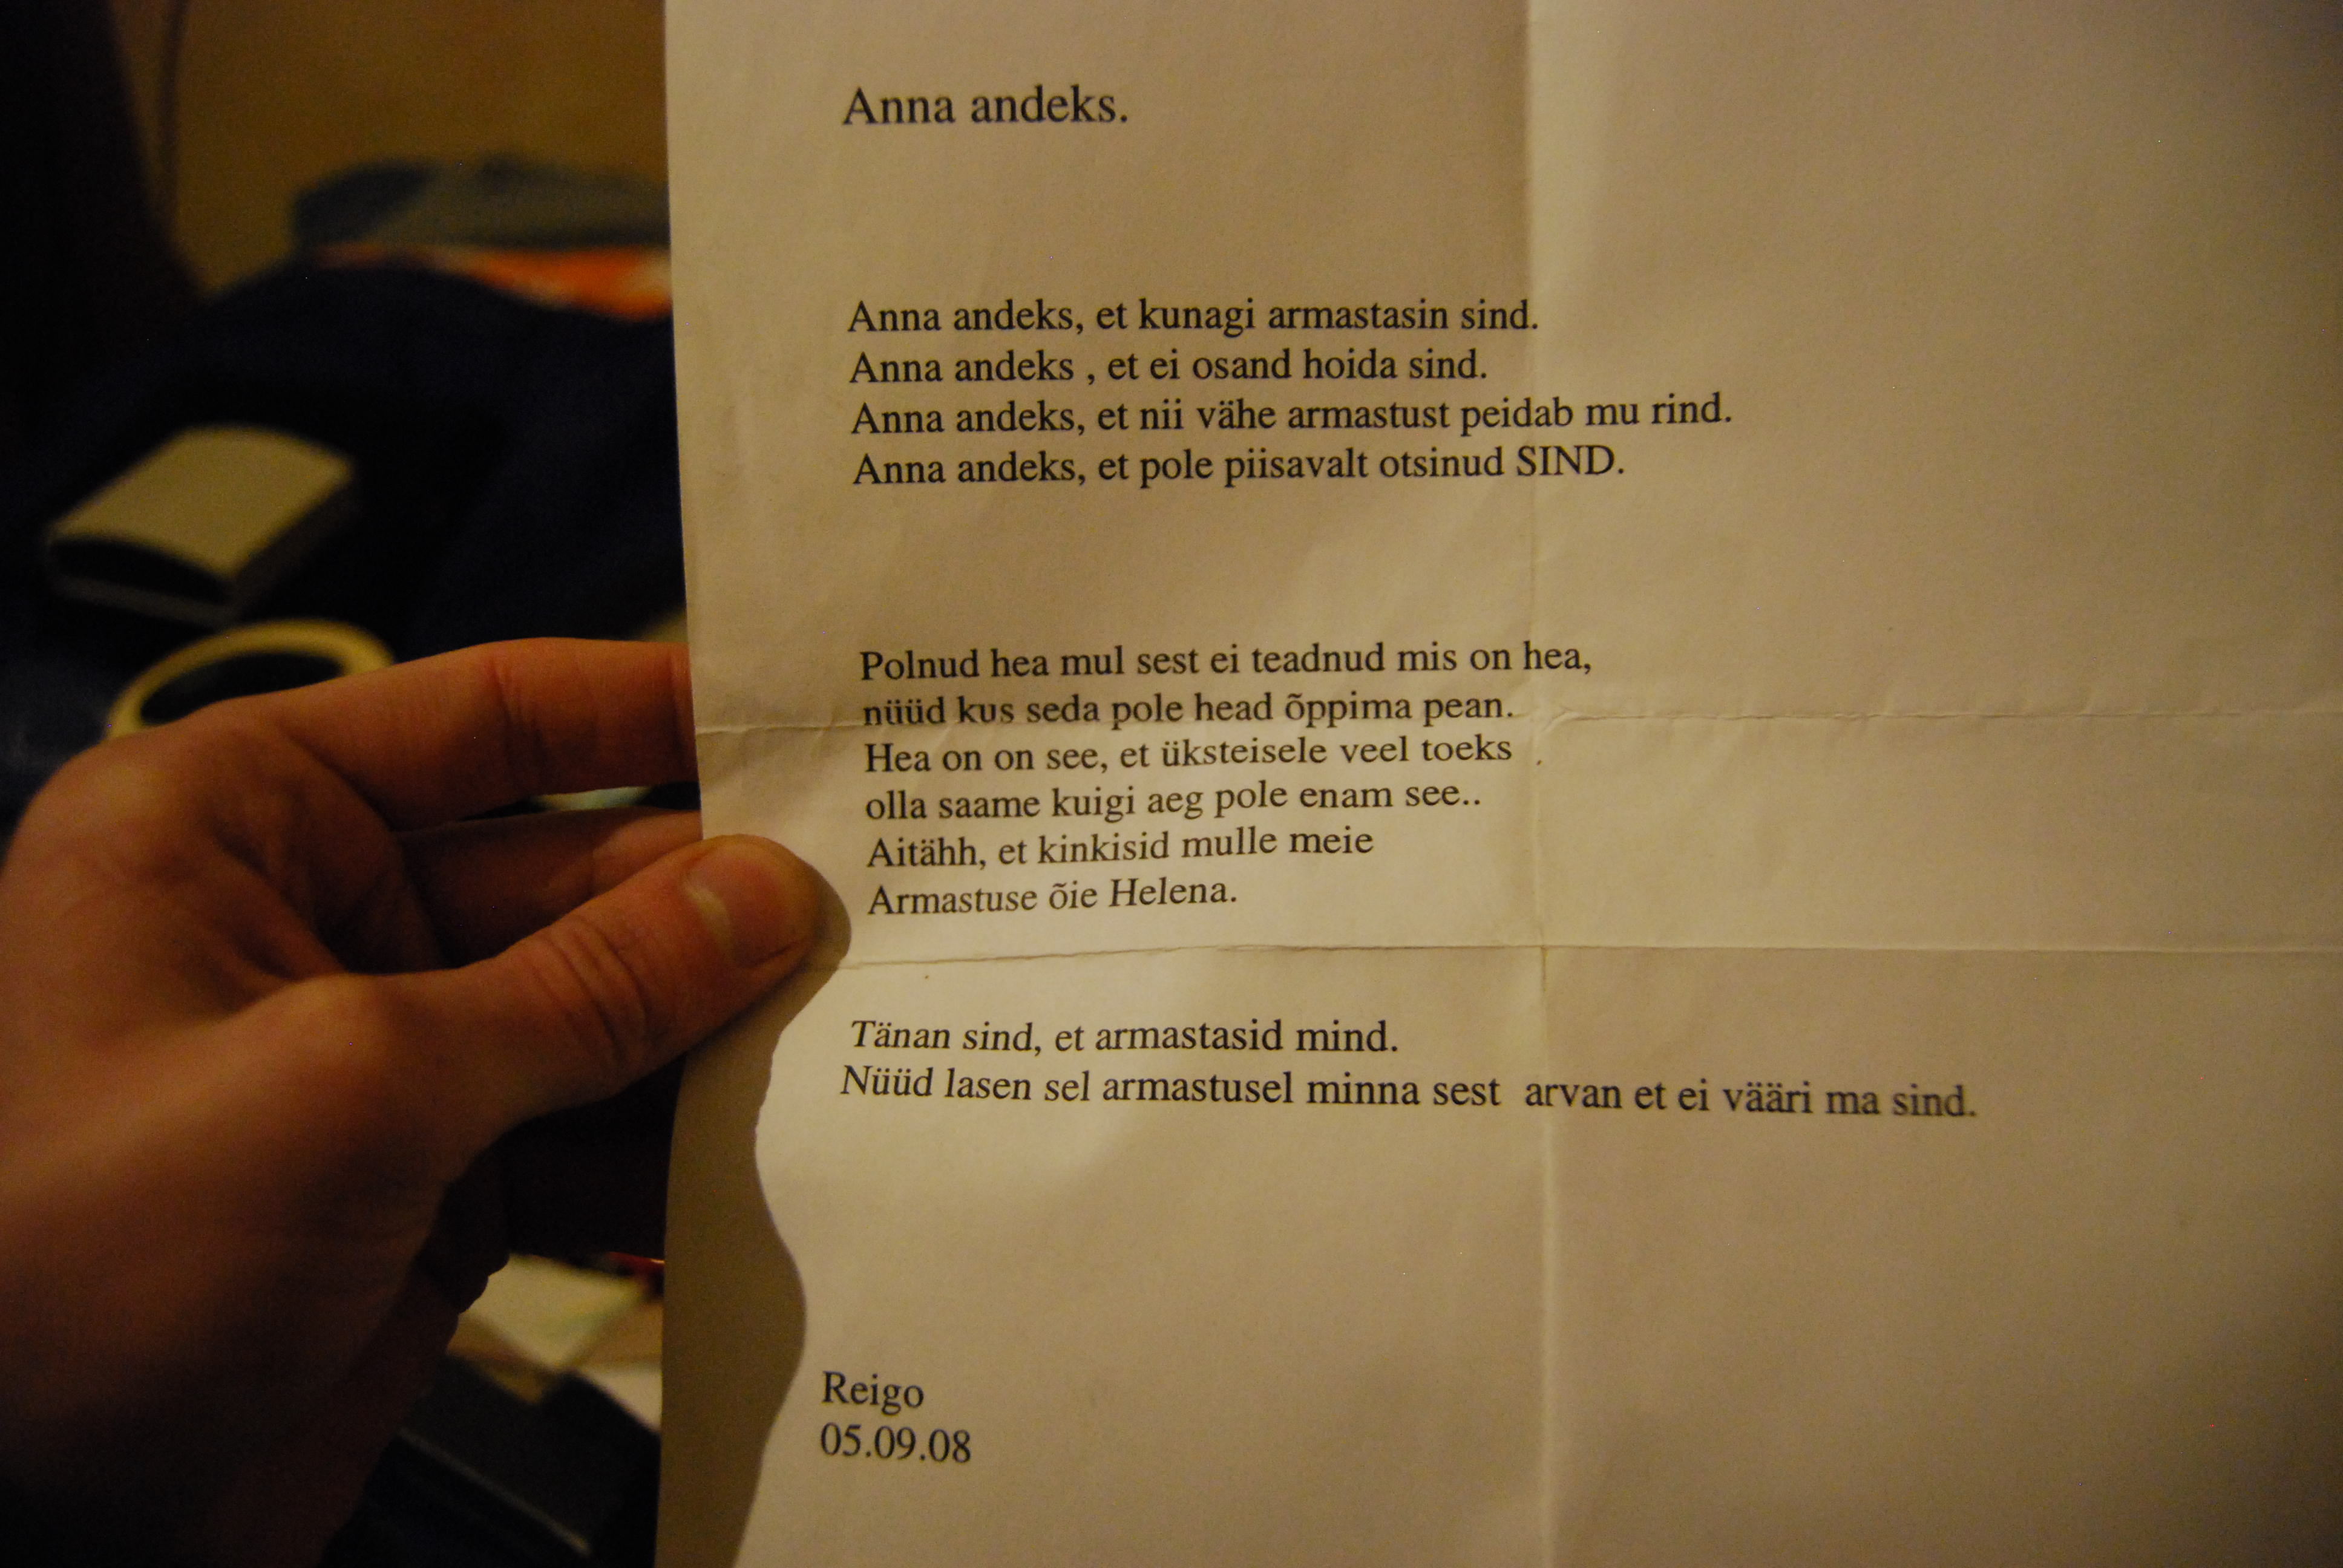 Anna andeks.
Anna andeks, et kunagi armastasin sind.
Anna andeks , et ei osand hoida sind.
Anna andeks, et nii vähe armastust peidab mu rind.
Anna andeks, et pole piisavalt otsinud SIND.
Polnud hea mul sest ei teadnud mis on hea,
nüüd kus seda pole head õppima pean.
Hea on on see, et üksteisele veel toeks
olla saame kuigi aeg pole enam see..
Aitähh, et kinkisid mulle meie
Armastuse õie Helena.
Tänan sind, et armastasid mind.
Nüüd lasen sel armastusel minna sest arvan et ei vääri ma sind.
Reigo
05.09.08